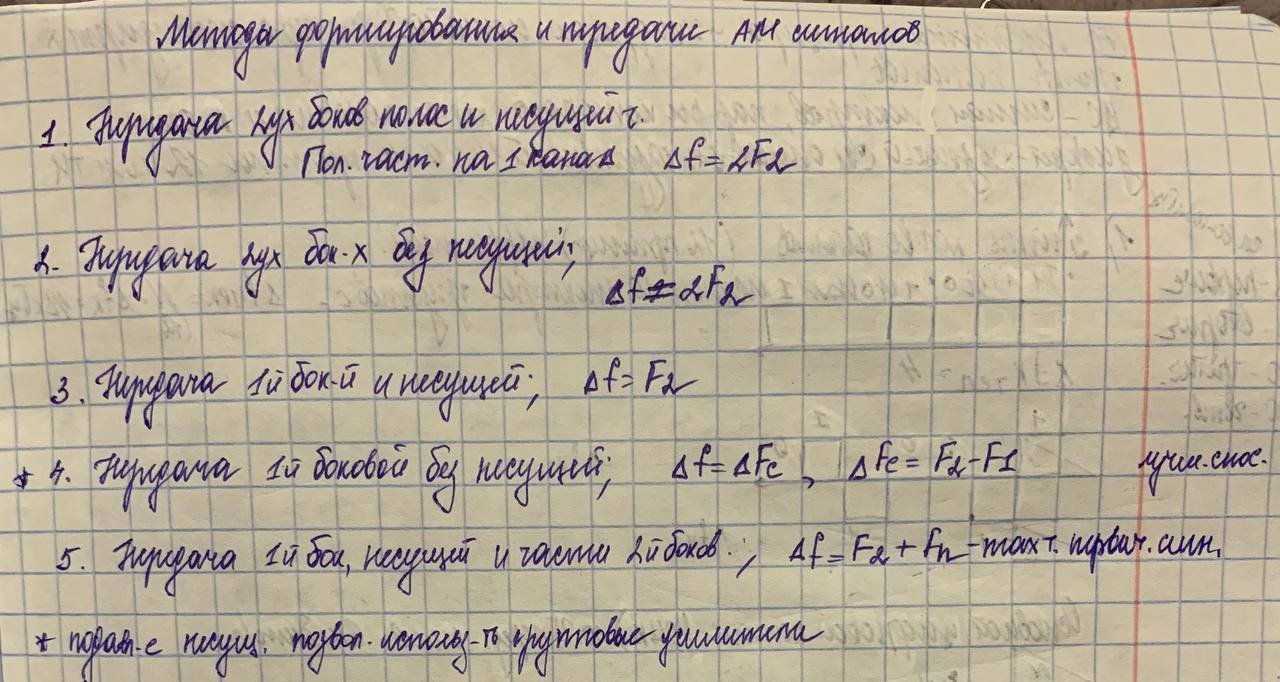 Методы формирования и передачи АМ сигналов
1. Передача 2ух боков полос и несущей ч.
Пол. част. на 1 канал Δf = 2F2
2. Передача 2ух бок-х без несущей;
Δf = 2F2
3. Передача 1й бок-й и несущей; Δf = F2
* 4. Передача 1й боковой без несущей; Δf = ΔFc , ΔFc = F2 - F1 лучш. спос.
5. Передача 1й бок, несущей и части 2й боков. ; Δf = F2 + fn - max ч. первич. сигн.
* подавл-е несущ. позвол. использ-ть групповые усилители